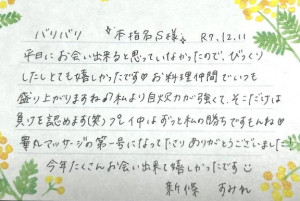 バリバリ "本指名S様" R7.12.11
平日にお会い出来ると思っていなかったので、びっくり
したしとても嬉しかったです♡お料理仲間でいつも
盛り上がりますね♪私より自炊力が強くて、そこだけは
負けを認めます(笑)プレイ中はずっと私の勝ちですもんね♡
睾丸マッサージの第一号になって下さりありがとうございました!
今年たくさんお会い出来て嬉しかったです☺
新條 すみれ